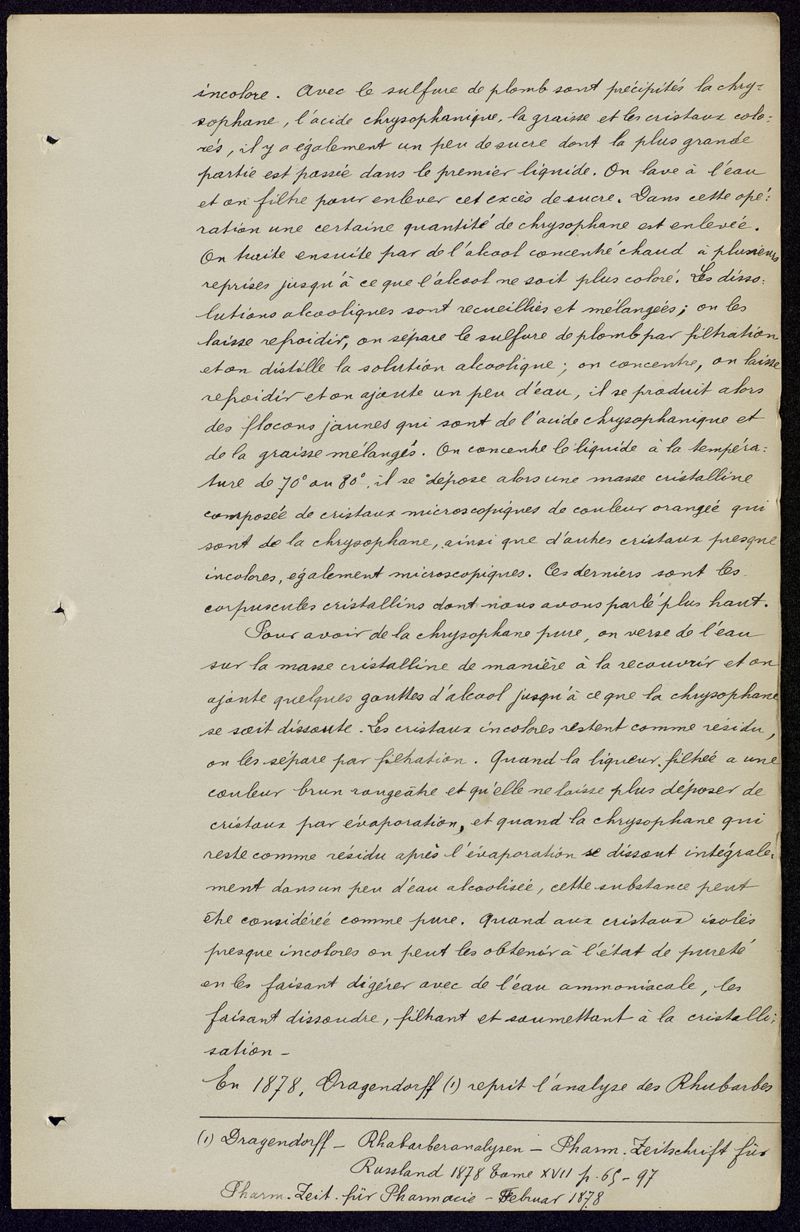 incolore. Avec le sulfure de plomb sont précipités la chry-
sophane, l'acide chrysophanique, la graisse et les cristaux colo-
rés, il y a également un peu de sucre dont la plus grande
partie est passée dans le premier liquide. On lave à l'eau
et on filtre pour enlever cet excès de sucre. Dans cette opé-
ration une certaine quantité de chrysophane est enlevée.
On traite ensuite par de l'alcool concentré chaud à plusieurs
reprises jusqu'à ce que l'alcool ne soit plus coloré. Les disso-
lutions alcooliques sont recueillies et mélangées; on les
laisse refroidir, on sépare le sulfure de plomb par filtration
et on distille la solution alcoolique; on concentre, on laisse
refroidir et on ajoute un peu d'eau, il se produit alors
des flocons jaunes qui sont de l'acide chrysophanique et
de la graisse mélangés. On concentre le liquide à la tempéra-
ture de 70° ou 80°, il se dépose alors une masse cristalline
composée de cristaux microscopiques de couleur orangée qui
sont de la chrysophane, ainsi que d'autres cristaux presque
incolores, également microscopiques. Ces derniers sont les
corpuscules cristallins dont nous avons parlé plus haut.
Pour avoir de la chrysophane pure, on verse de l'eau
sur la masse cristalline de manière à la recouvrir et on
ajoute quelques gouttes d'alcool jusqu'à ce que la chrysophane
se soit dissoute. Les cristaux incolores restent comme résidu,
on les sépare par filtration. Quand la liqueur filtrée a une
couleur brun rougeâtre et qu'elle ne laisse plus déposer de
cristaux par évaporation, et quand la chrysophane qui
reste comme résidu après l'évaporation se dissout intégrale-
ment dans un peu d'eau alcoolisée, cette substance peut
être considérée comme pure. Quand aux cristaux isolés
presque incolores on peut les obtenir à l'état de pureté
en les faisant digérer avec de l'eau ammoniacale, les
faisant dissoudre, filtrant et soumettant à la cristalli-
sation -
En 1878, Dragendorff (1) reprit l'analyse des Rhubarbes
(1) Dragendorff - Rhabarberanalysen - Pharm. Zeitschrift für
Russland 1878 tome XVII p. 65-97
Pharm. Zeit. für Pharmacie - Februar 1878